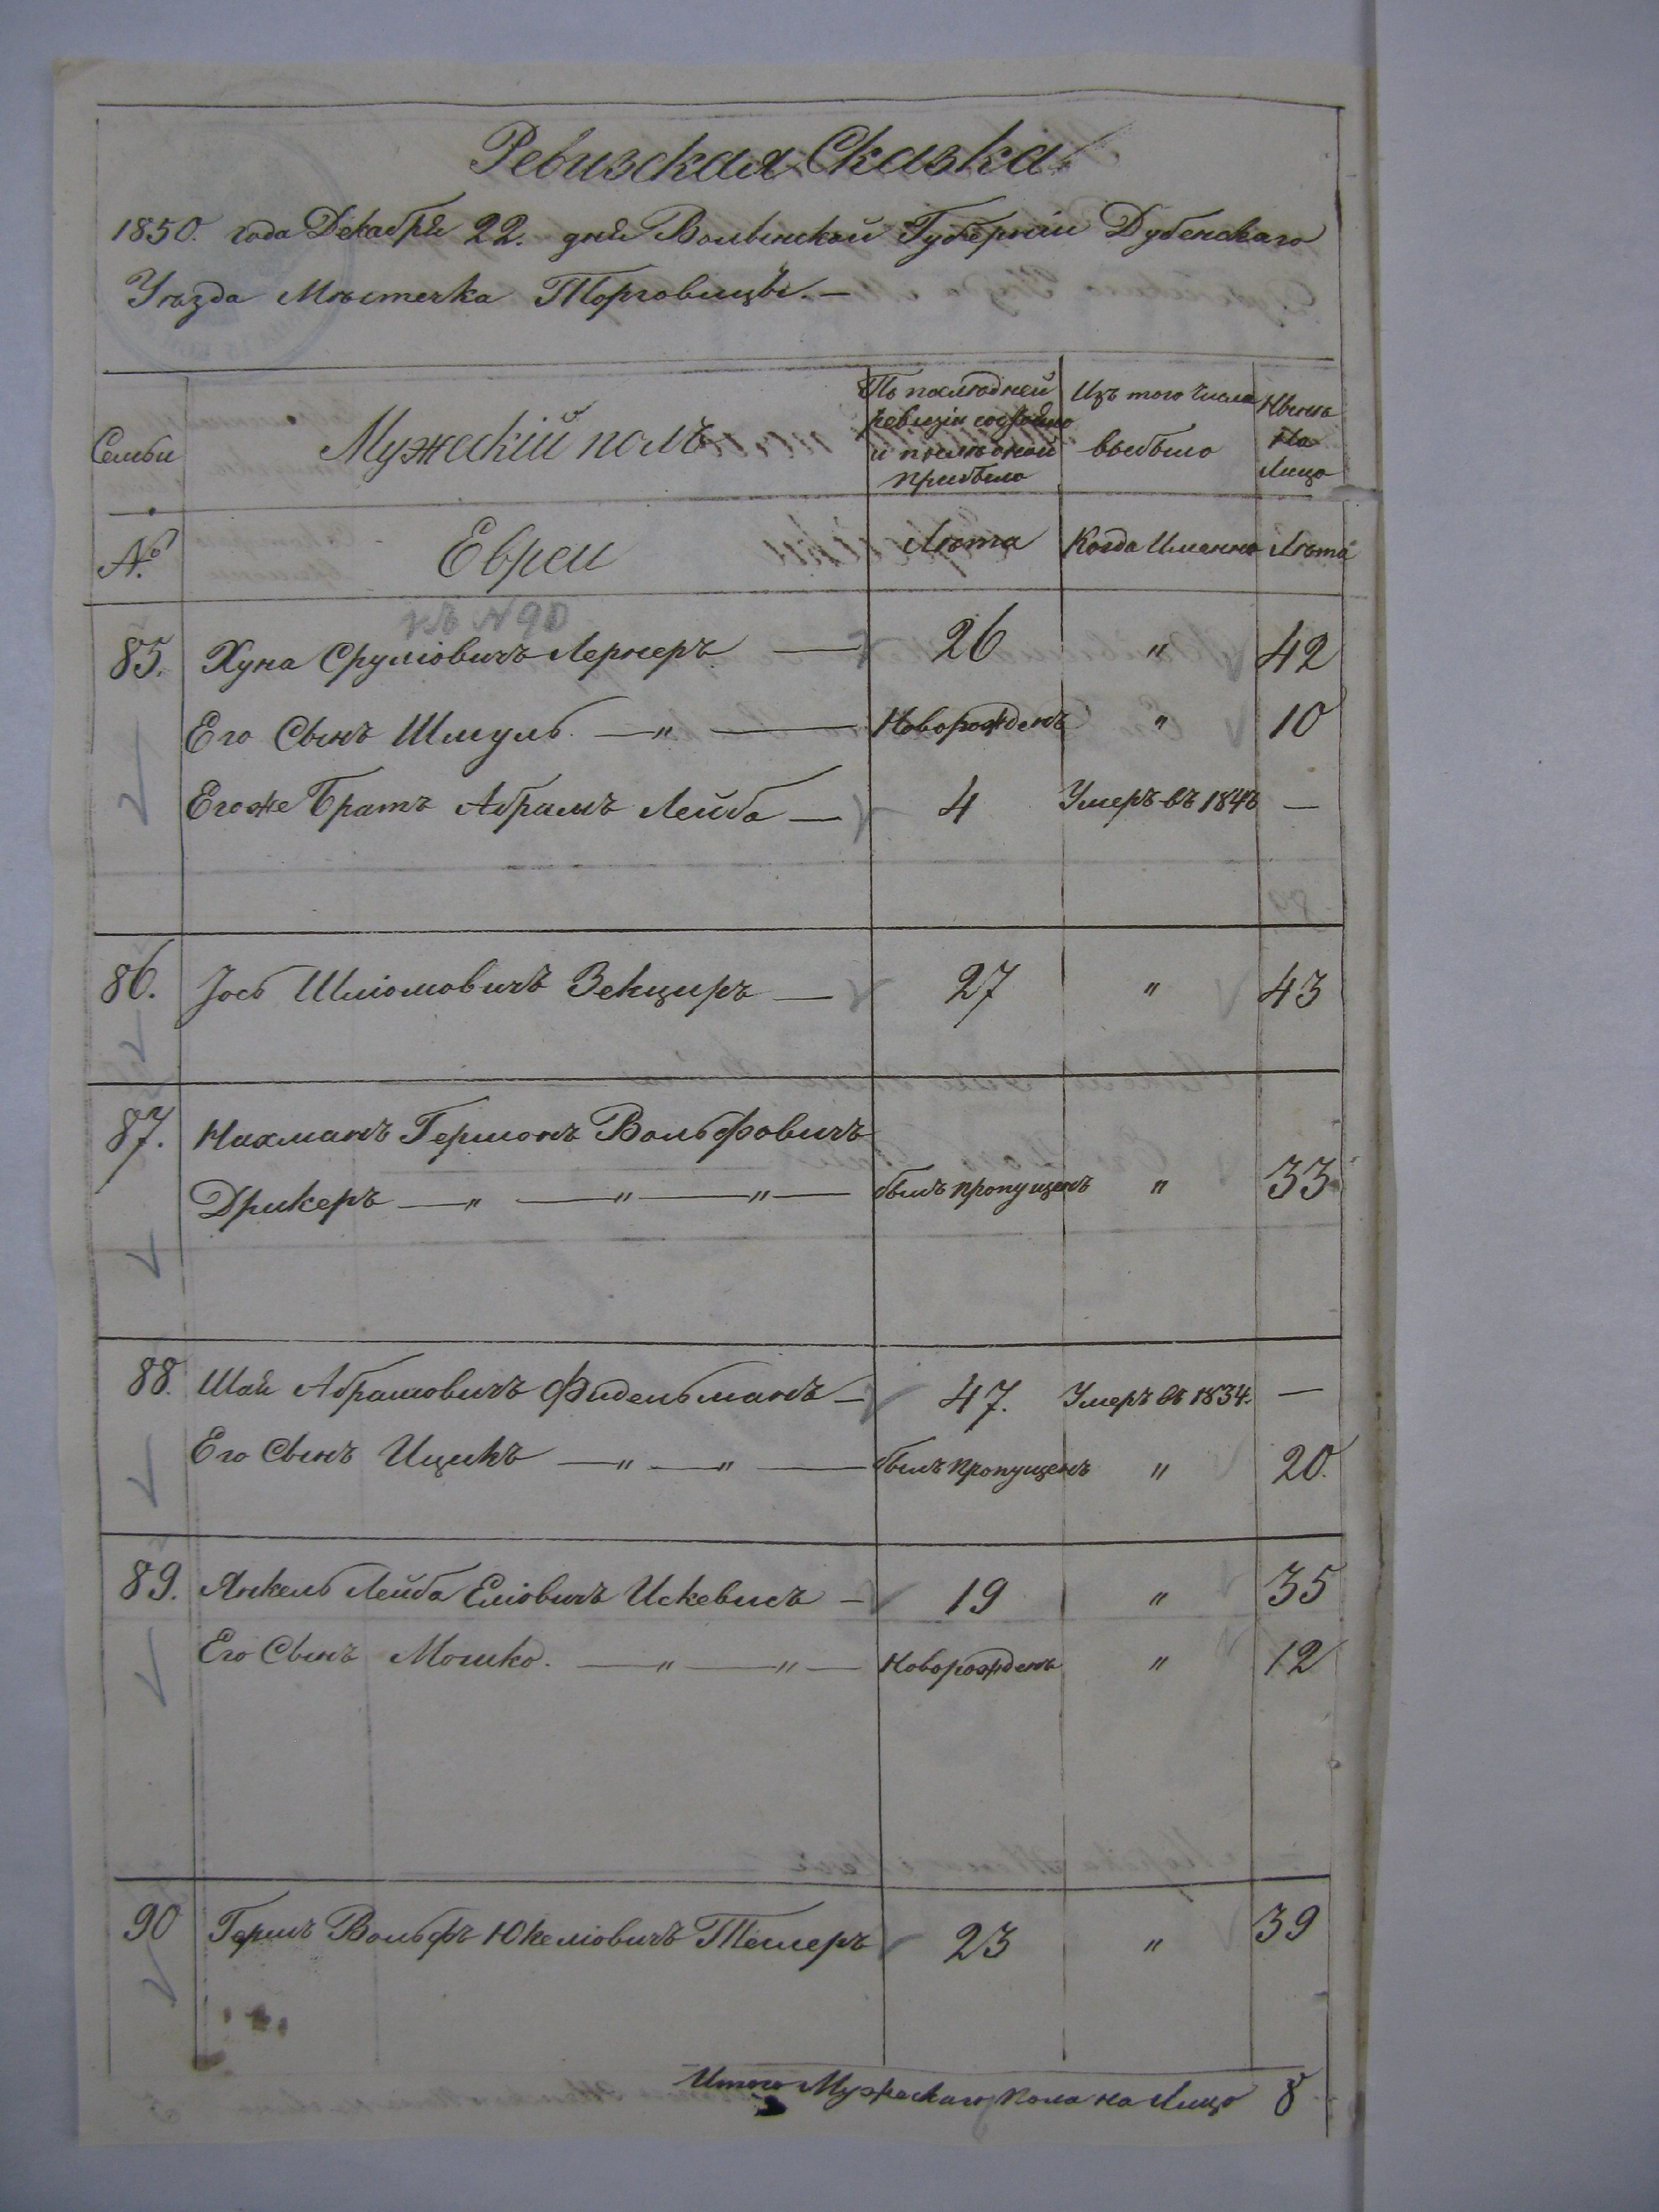 Ревизская Сказка
1850. года Декабря 22. дня Волынской Губерніи Дубенскаго
Уѣзда Мѣстечка Торговицы. —
Семьи
Мужескій полъ
По последней
ревизіи состояло
и после оной
прибыло
Изъ того Числа
выбыло
Нынѣ
На
Лицо
№
Евреи
Лѣта
Когда Именно
Лѣта
къ № 90
85. Хуна Сруліовичъ Лернеръ — 26 " 42
Его Сынъ Шмуль — " — Новорожденъ " 10
Егоже Братъ Абрамъ Лейба — 4 Умеръ въ 1848 —
86. Іось Шліомовичъ Зекцеръ — 27 " 43
87. Нахманъ Гершонъ Вольфовичъ
Дрикеръ — " — " — " — былъ пропущенъ " 33
88. Шай Абрамовичъ Фидельманъ — 47. Умеръ въ 1834. —
Его Сынъ Ицикъ — " — " — былъ пропущенъ " 20.
89. Янкель Лейба Еліовичъ Искевисъ — 19 " 35
Его Сынъ Мошко. — " — " — Новорожденъ " 12
90 Гершъ Вольфъ Юкеліовичъ Тешеръ 23 " 39
Итого Мужескаго пола на Лицо 8